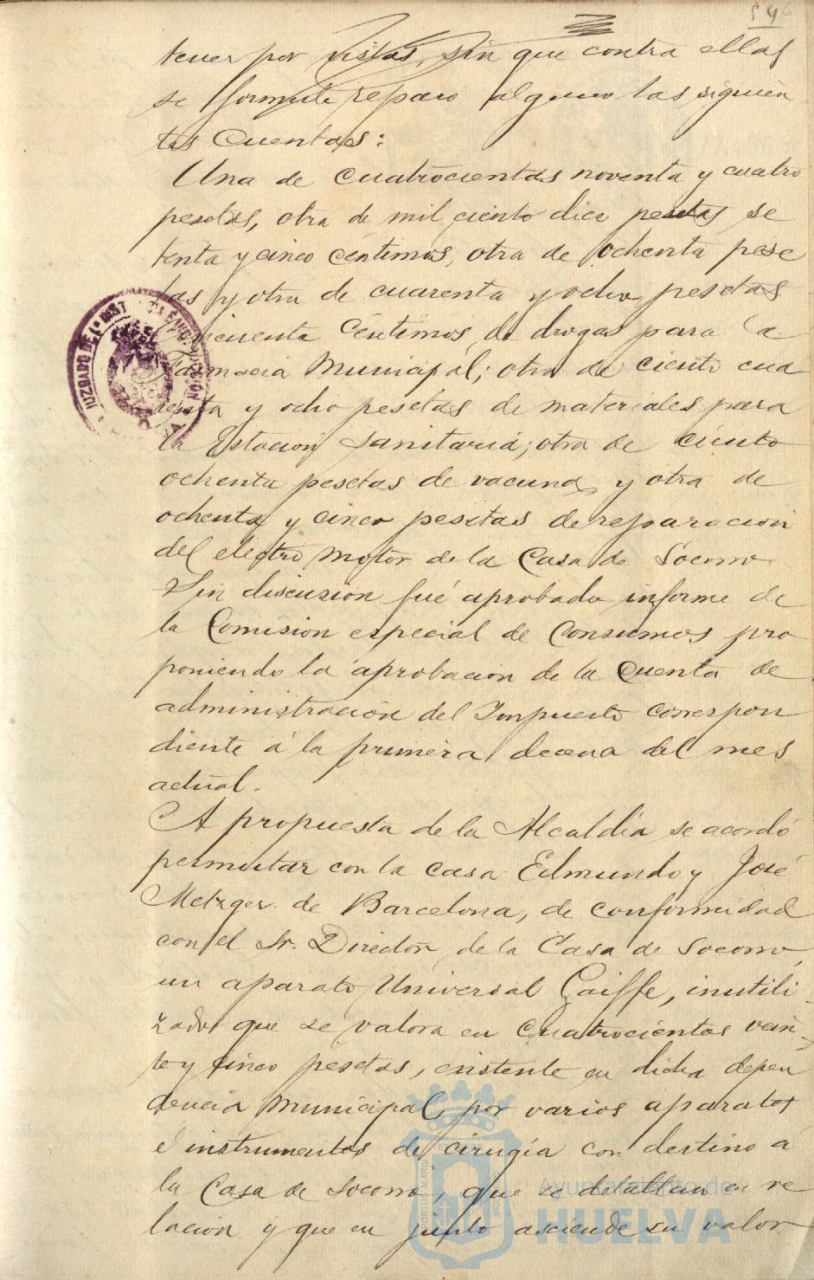 546
tener por vistas, sin que contra ellas
se formule reparo alguno las siguien
tes Cuentas:
Una de cuatrocientas noventa y cuatro
pesetas, otra de mil ciento diez pesetas se
tenta y cinco centimos, otra de ochenta pese
tas y otra de cuarenta y ocho pesetas
cincuenta centimos, de drogas para la
Farmacia Municipal; otra de ciento cua
renta y ocho pesetas de materiales para
la Estacion Sanitaria; otra de ciento
ochenta pesetas de vacuna, y otra de
ochenta y cinco pesetas de reparacion
del electro motor de la Casa de Socorro.
Sin discusion fué aprobado informe de
la Comision especial de Consumos pro
poniendo la aprobacion de la Cuenta de
administración del Impuesto correspon
diente á la primera decena del mes
actual.
A propuesta de la Alcaldia se acordó
permutar con la casa Edmundo y José
Metzger de Barcelona, de conformidad
con el Sr. Director de la Casa de Socorro,
un aparato Universal Gaiffe, inutili-
zado que se valora en cuatrocientas vein-
te y cinco pesetas, existente en dicha depen
dencia Municipal, por varios aparatos
é instrumentos de cirugía con destino á
la Casa de Socorro, que se detallan en re
lacion y que en junto asciende su valor
JUZGADO DE 1ª INST
Ayuntamiento de
HUELVA